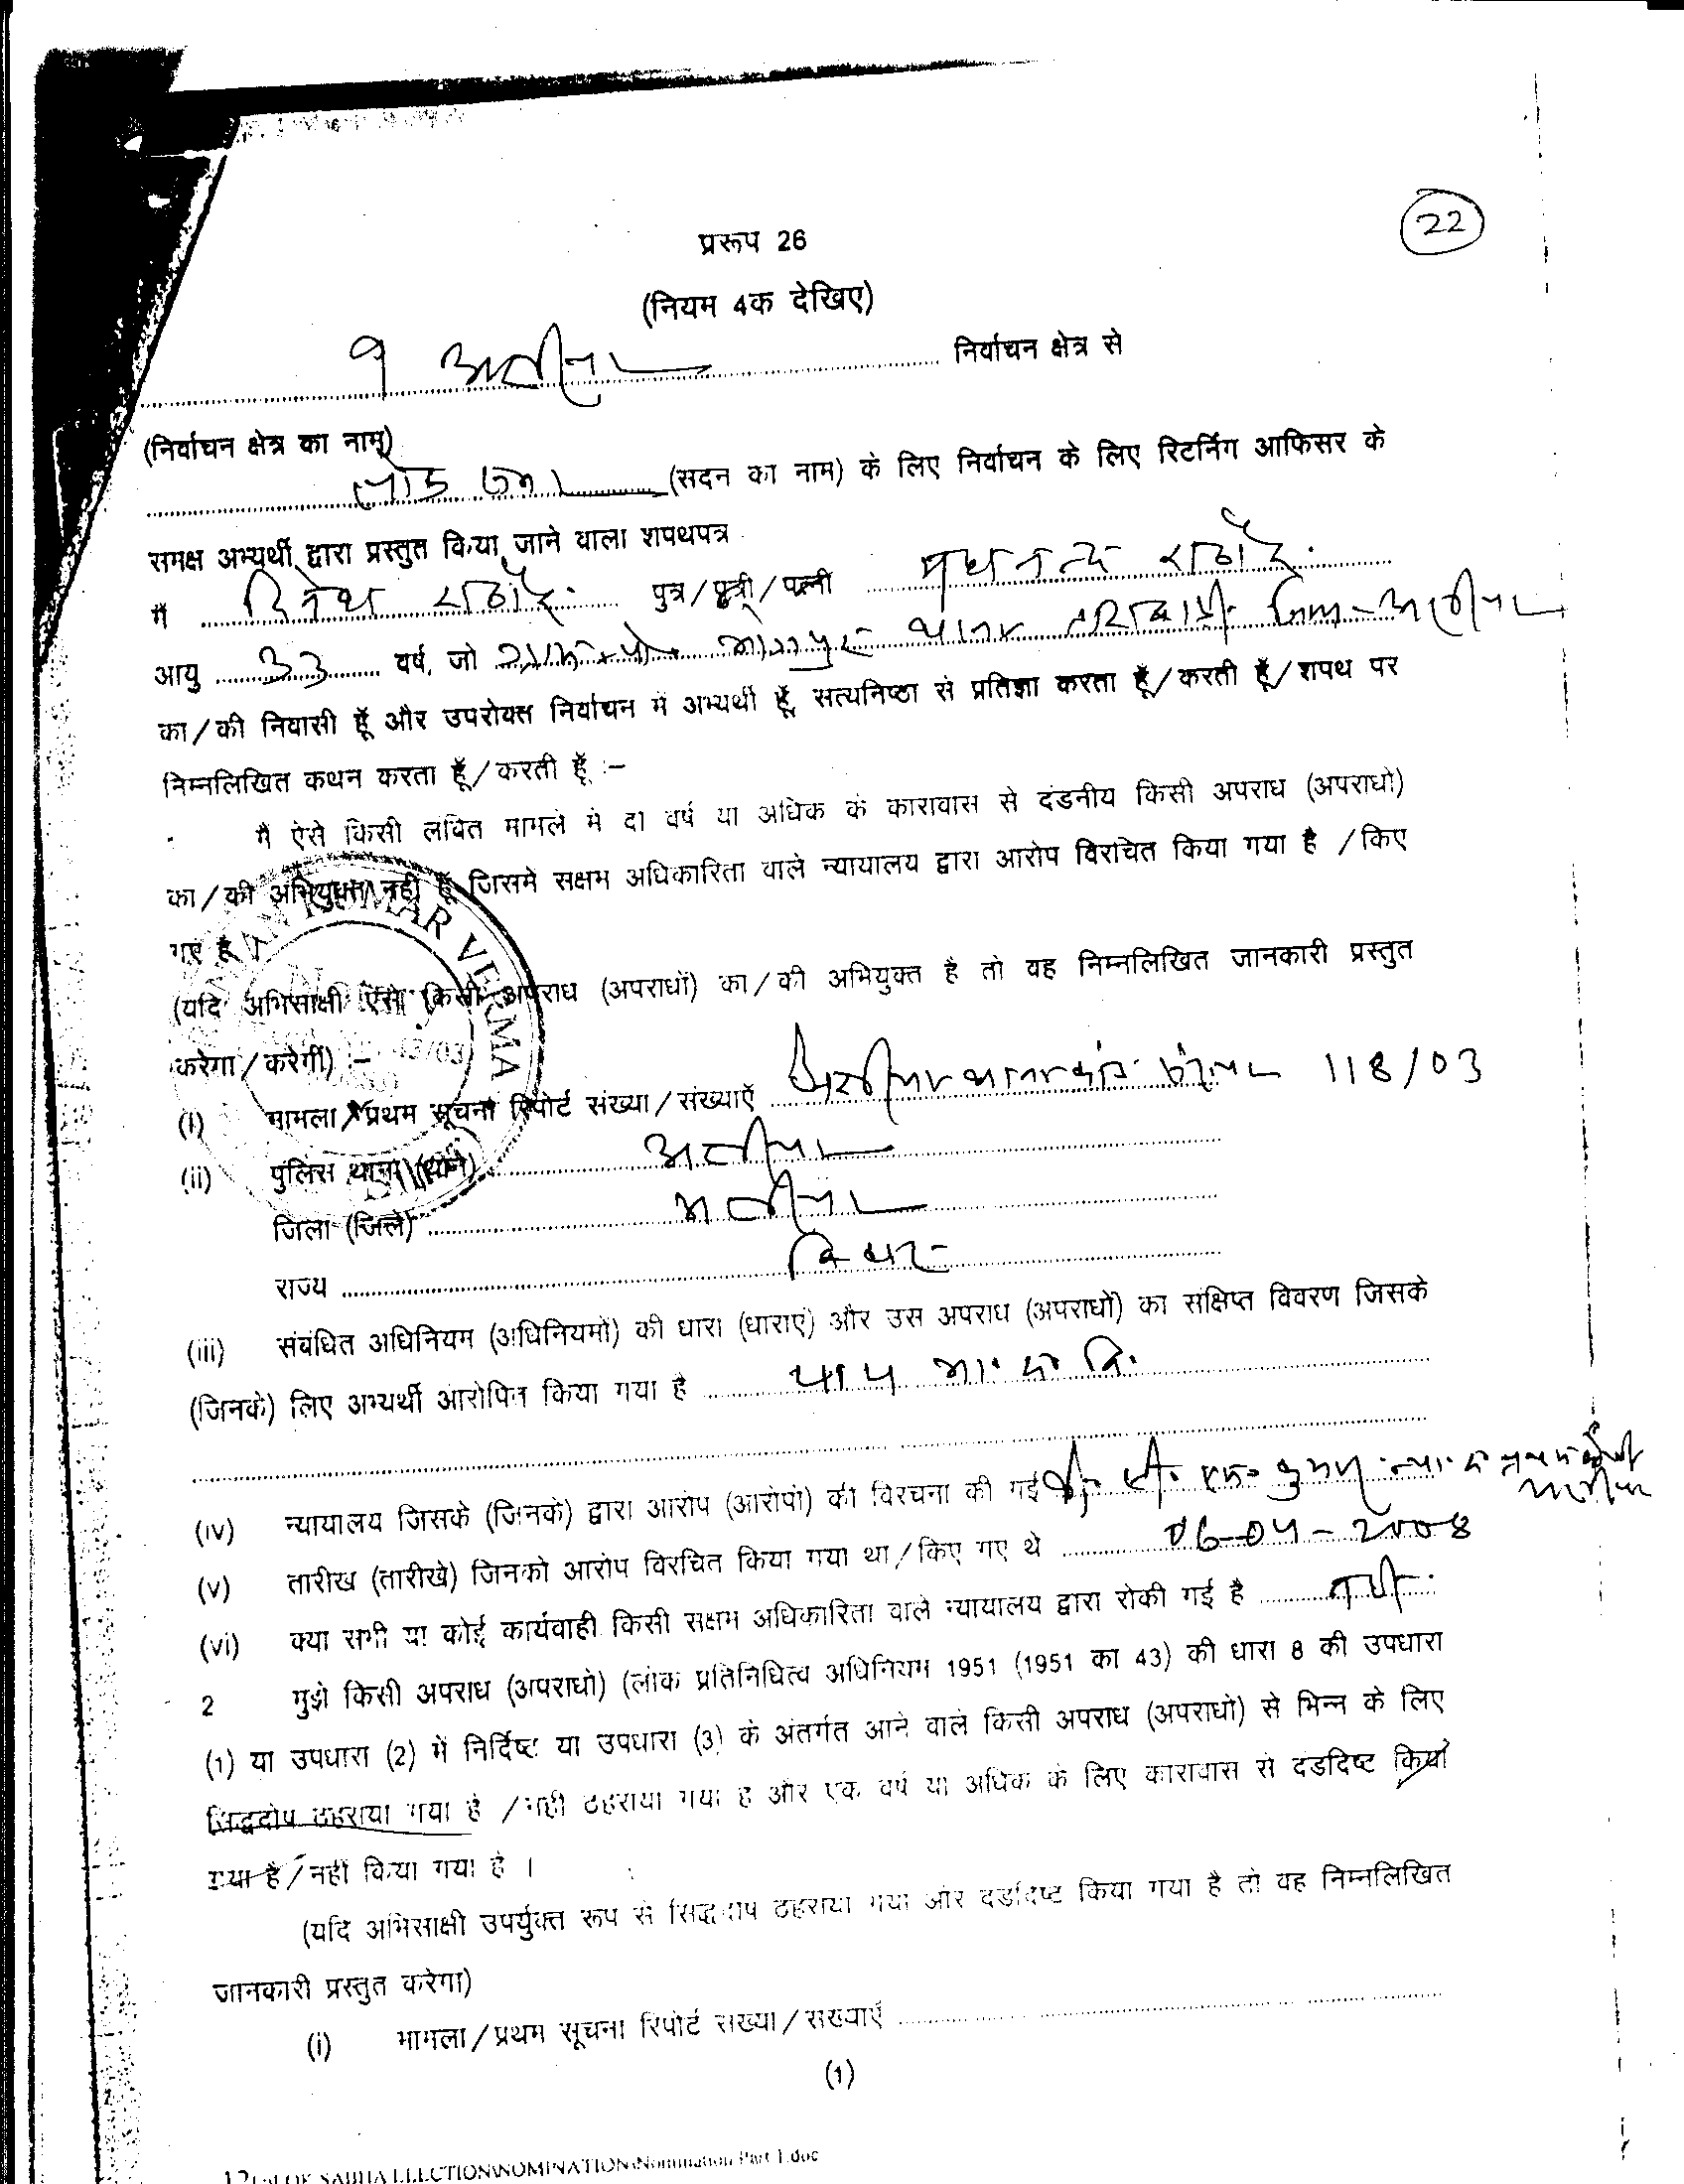 22
प्ररूप 26
(नियम 4क देखिए)
निर्वाचन क्षेत्र से
(निर्वाचन क्षेत्र का नाम)
(सदन का नाम) के लिए निर्वाचन के लिए रिटर्निग आफिसर के
समक्ष अभ्यर्थी द्वारा प्रस्तुत किया जाने वाला शपथपत्र
मैं दिनेश राठौर पुत्र/पुत्री/पत्नी राठौर
आयु 33 वर्ष, जो
का/की निवासी हूँ और उपरोक्त निर्वाचन में अभ्यर्थी हूँ, सत्यनिष्ठा से प्रतिज्ञा करता हूँ/करती हूँ/शपथ पर
निम्नलिखित कथन करता हूँ/करती हूँ :–
मैं ऐसे किसी लंबित मामले में दो वर्ष या अधिक के कारावास से दंडनीय किसी अपराध (अपराधों)
का/की अभियुक्त नहीं हूँ जिसमें सक्षम अधिकारिता वाले न्यायालय द्वारा आरोप विरचित किया गया है /किए
गए हैं ।
KUMAR VERMA
(यदि अभिसाक्षी ऐसे किसी अपराध (अपराधों) का/की अभियुक्त है तो वह निम्नलिखित जानकारी प्रस्तुत
करेगा/करेगी) :–
(i) मामला/प्रथम सूचना रिपोर्ट संख्या/संख्याएँ 118/03
(ii) पुलिस थाना (थाने)
जिला (जिले)
राज्य बिहार
(iii) संबंधित अधिनियम (अधिनियमों) की धारा (धाराएं) और उस अपराध (अपराधों) का संक्षिप्त विवरण जिसके
(जिनके) लिए अभ्यर्थी आरोपित किया गया है भा॰ द॰ वि॰
(iv) न्यायालय जिसके (जिनके) द्वारा आरोप (आरोपों) की विरचना की गई
(v) तारीख (तारीखे) जिनको आरोप विरचित किया गया था/किए गए थे
(vi) क्या सभी या कोई कार्यवाही किसी सक्षम अधिकारिता वाले न्यायालय द्वारा रोकी गई है नहीं
2 मुझे किसी अपराध (अपराधों) (लोक प्रतिनिधित्व अधिनियम 1951 (1951 का 43) की धारा 8 की उपधारा
(1) या उपधारा (2) में निर्दिष्ट या उपधारा (3) के अंतर्गत आने वाले किसी अपराध (अपराधों) से भिन्न के लिए
सिद्धदोष ठहराया गया है /नहीं ठहराया गया है और एक वर्ष या अधिक के लिए कारावास से दंडदिष्ट किया
गया है/नहीं किया गया है ।
(यदि अभिसाक्षी उपर्युक्त रूप से सिद्धदोष ठहराया गया और दंडादिष्ट किया गया है तो वह निम्नलिखित
जानकारी प्रस्तुत करेगा)
(i) मामला/प्रथम सूचना रिपोर्ट संख्या/संख्याएँ
(1)
LOK SABHA ELECTION\NOMINATION\Nomination Part I.doc